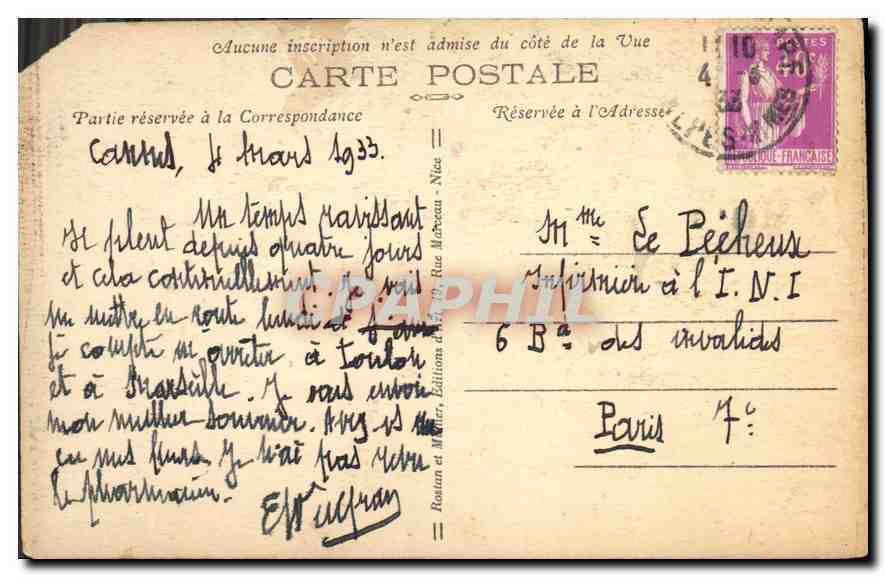 Aucune inscription n'est admise du côté de la Vue
CARTE POSTALE
Partie réservée à la Correspondance
Réservée à l'Adresse
POSTES
RÉPUBLIQUE-FRANÇAISE
Mars 1933.
Un temps ravissant
Il pleut depuis quatre jours
et cela continuellement. Je vais
me mettre en route lundi et
Je compte m'arrêter à Toulon
et à Marseille. Je vous envoie
mon meilleur souvenir.
Je n'ai pas
le pharmacien.
Rostan et Munier, Editions d'Art, 19, Rue Marceau - Nice
Mme Le Pécheux
Infirmier à l'I.N.I
6 Bd des invalides
Paris 7e
CPAPHIL